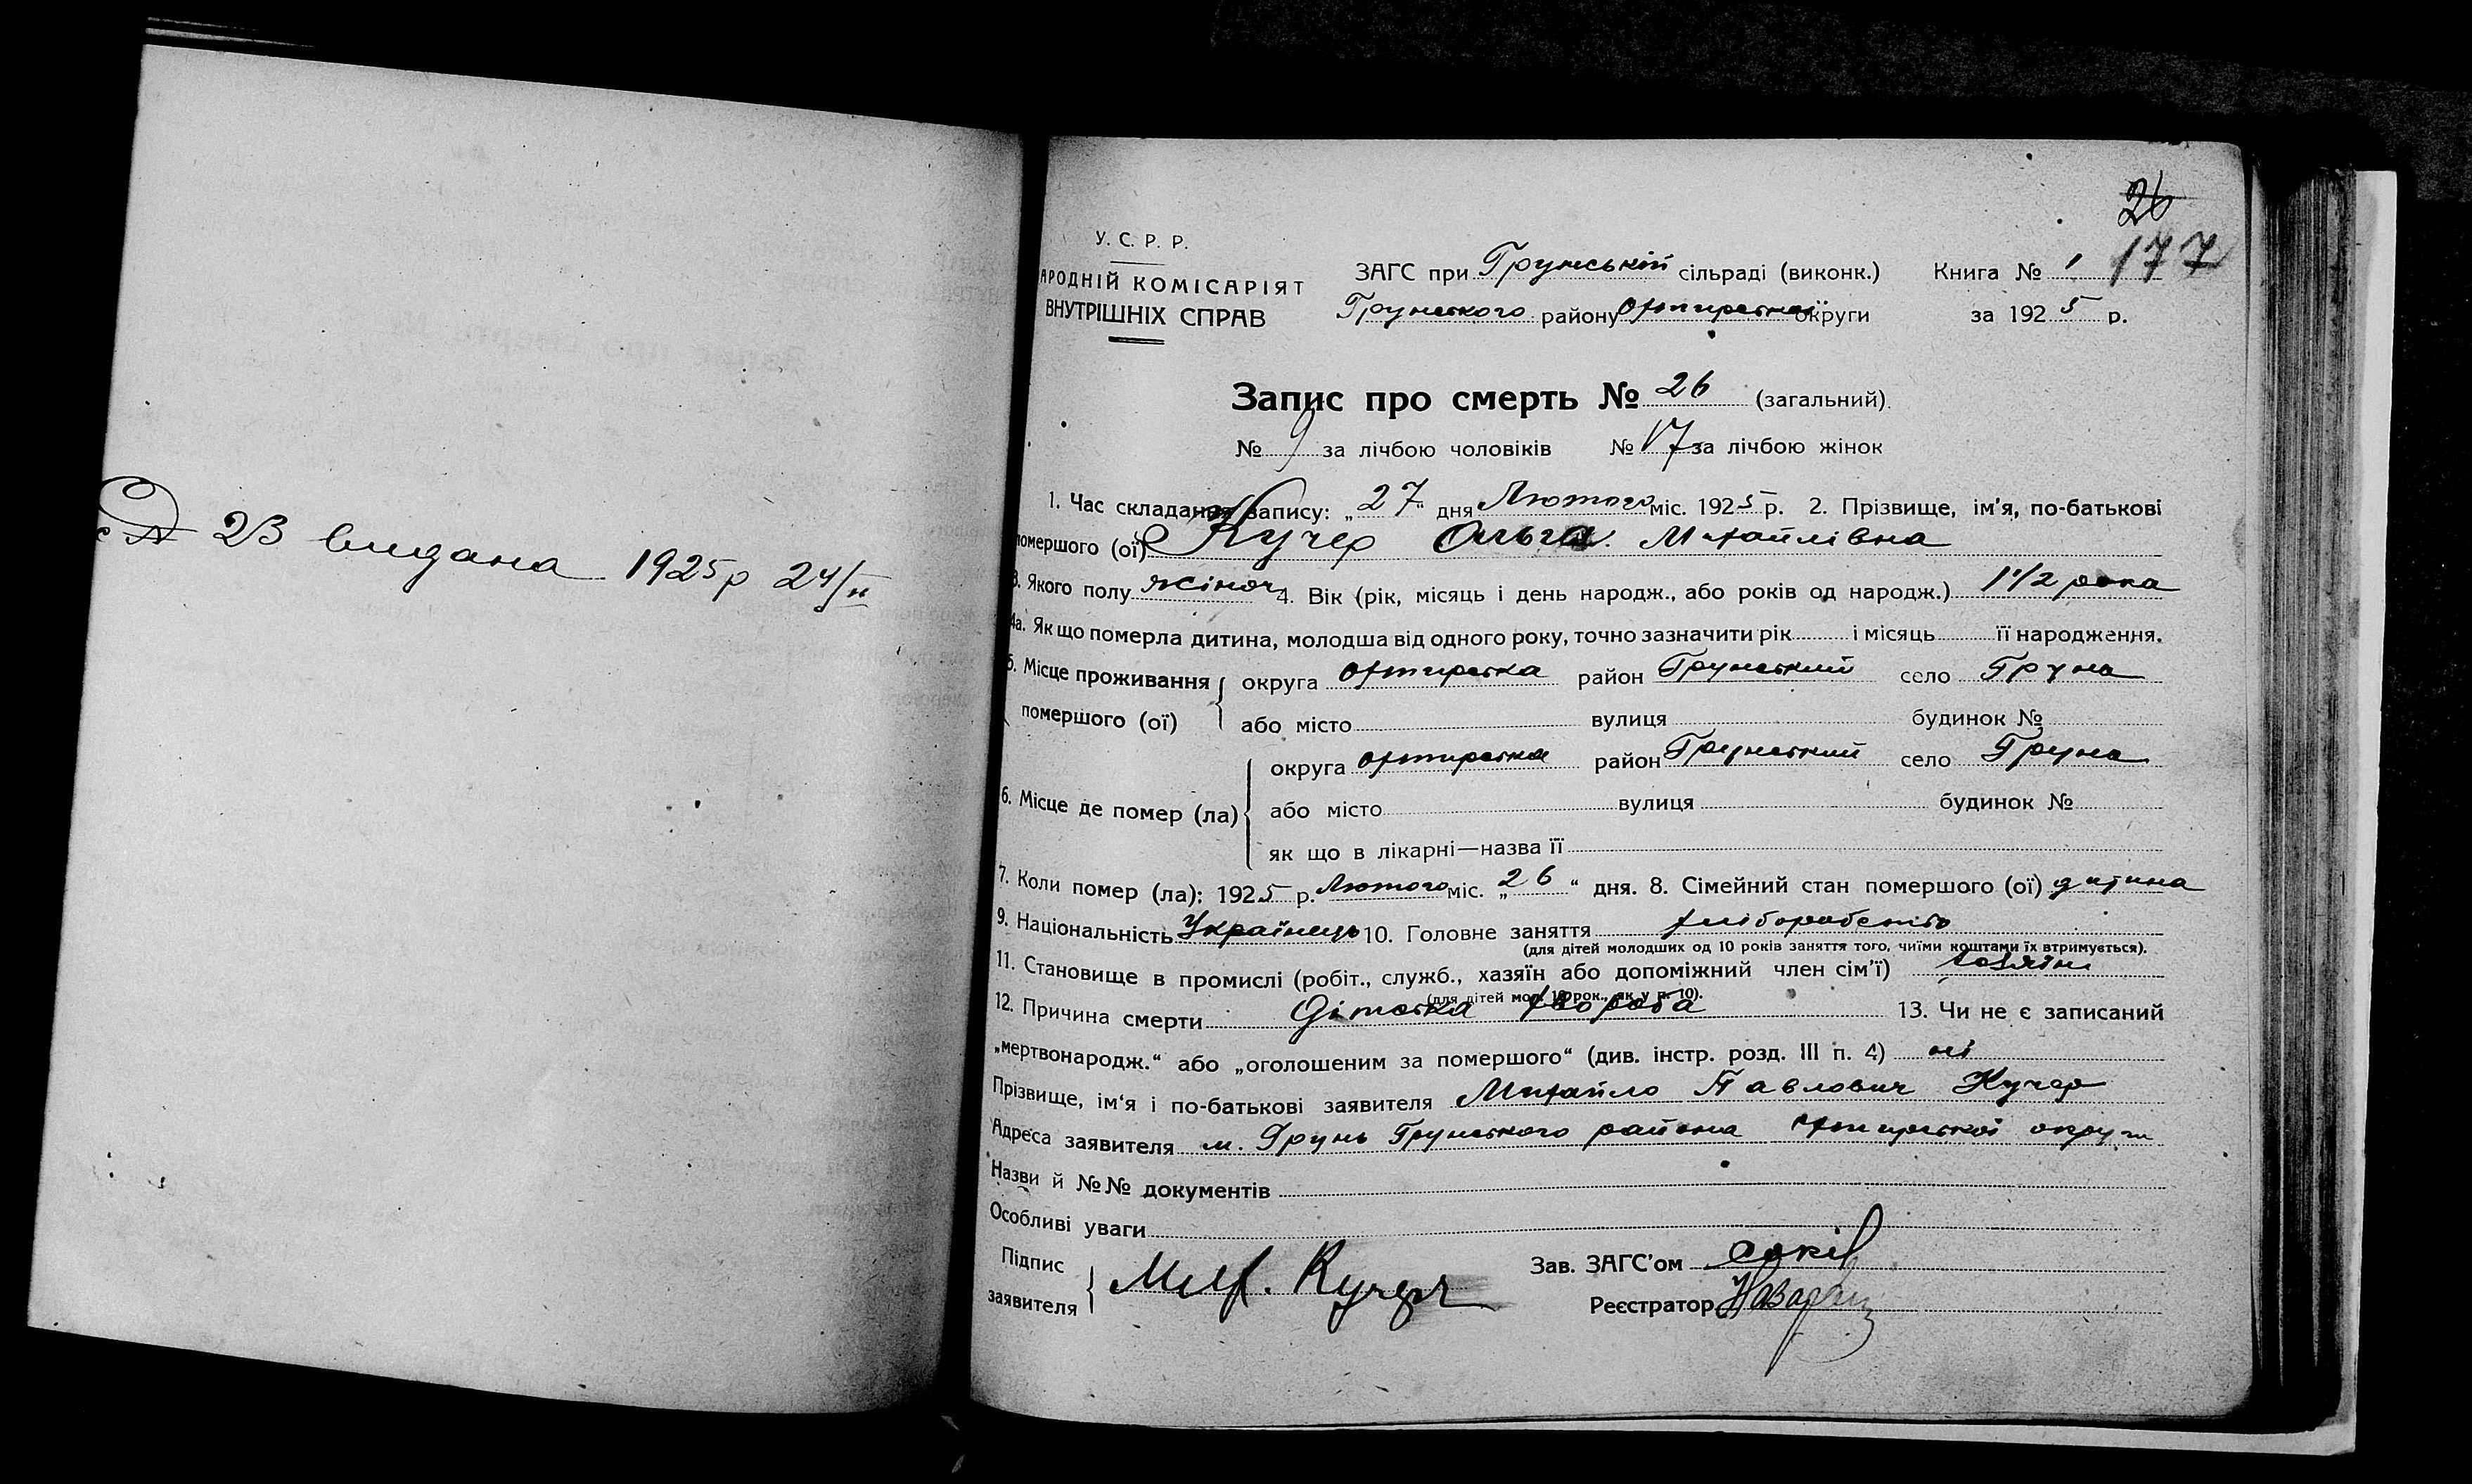 23 видана 1925р 24/II
26
177
У. С. Р. Р.
АРОДНІЙ КОМІСАРІЯТ
ВНУТРІШНІХ СПРАВ
ЗАГС при Грунській сільраді (виконк.)
Грунського району Охтирської округи
Книга № 1
за 1925 р.
Запис про смерть № 26 (загальний).
№ 9 за лічбою чоловіків № 17 за лічбою жінок
1. Час складання запису: „27“ дня Лютого міс. 1925 р. 2. Прізвище, ім'я, по-батькові
помершого (ої) Кучер Ольга Михайлівна
3. Якого полу жіноч 4. Вік (рік, місяць і день народж., або років од народж.) 1 1/2 рока
4а. Як що померла дитина, молодша від одного року, точно зазначити рік і місяць її народження.
5. Місце проживання помершого (ої) округа Охтирська район Грунський село Груна
або місто вулиця будинок №
6. Місце де помер (ла) округа Охтирська район Грунський село Груна
або місто вулиця будинок №
як що в лікарні—назва її
7. Коли помер (ла): 1925 р. Лютого міс. „26“ дня. 8. Сімейний стан помершого (ої) дитина
9. Національність Українець 10. Головне заняття хліборобство
(для дітей молодших од 10 років заняття того, чиїми коштами їх втримується).
11. Становище в промислі (робіт., служб., хазяїн або допоміжний член сім'ї) хазяїн
(для дітей мол. 10 рок., як у п. 10).
12. Причина смерти Дітська хвороба 13. Чи не є записаний
„мертвонародж.“ або „оголошеним за помершого“ (див. інстр. розд. III п. 4) ні
Прізвище, ім'я і по-батькові заявителя Михайло Павлович Кучер
Адреса заявителя м. Грунь Грунського района Охтирської округи
Назви й №№ документів
Особливі уваги
Підпис заявителя Мих. Кучер
Зав. ЗАГС'ом
Реєстратор